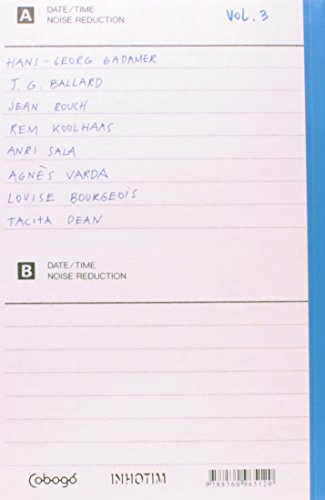 A DATE/TIME
NOISE REDUCTION
VOL. 3
HANS-GEORG GADAMER
J. G. BALLARD
JEAN ROUCH
REM KOOLHAAS
ANRI SALA
AGNÈS VARDA
LOUISE BOURGEOIS
TACITA DEAN
B DATE/TIME
NOISE REDUCTION
Cobogó INHOTIM
9788560965120